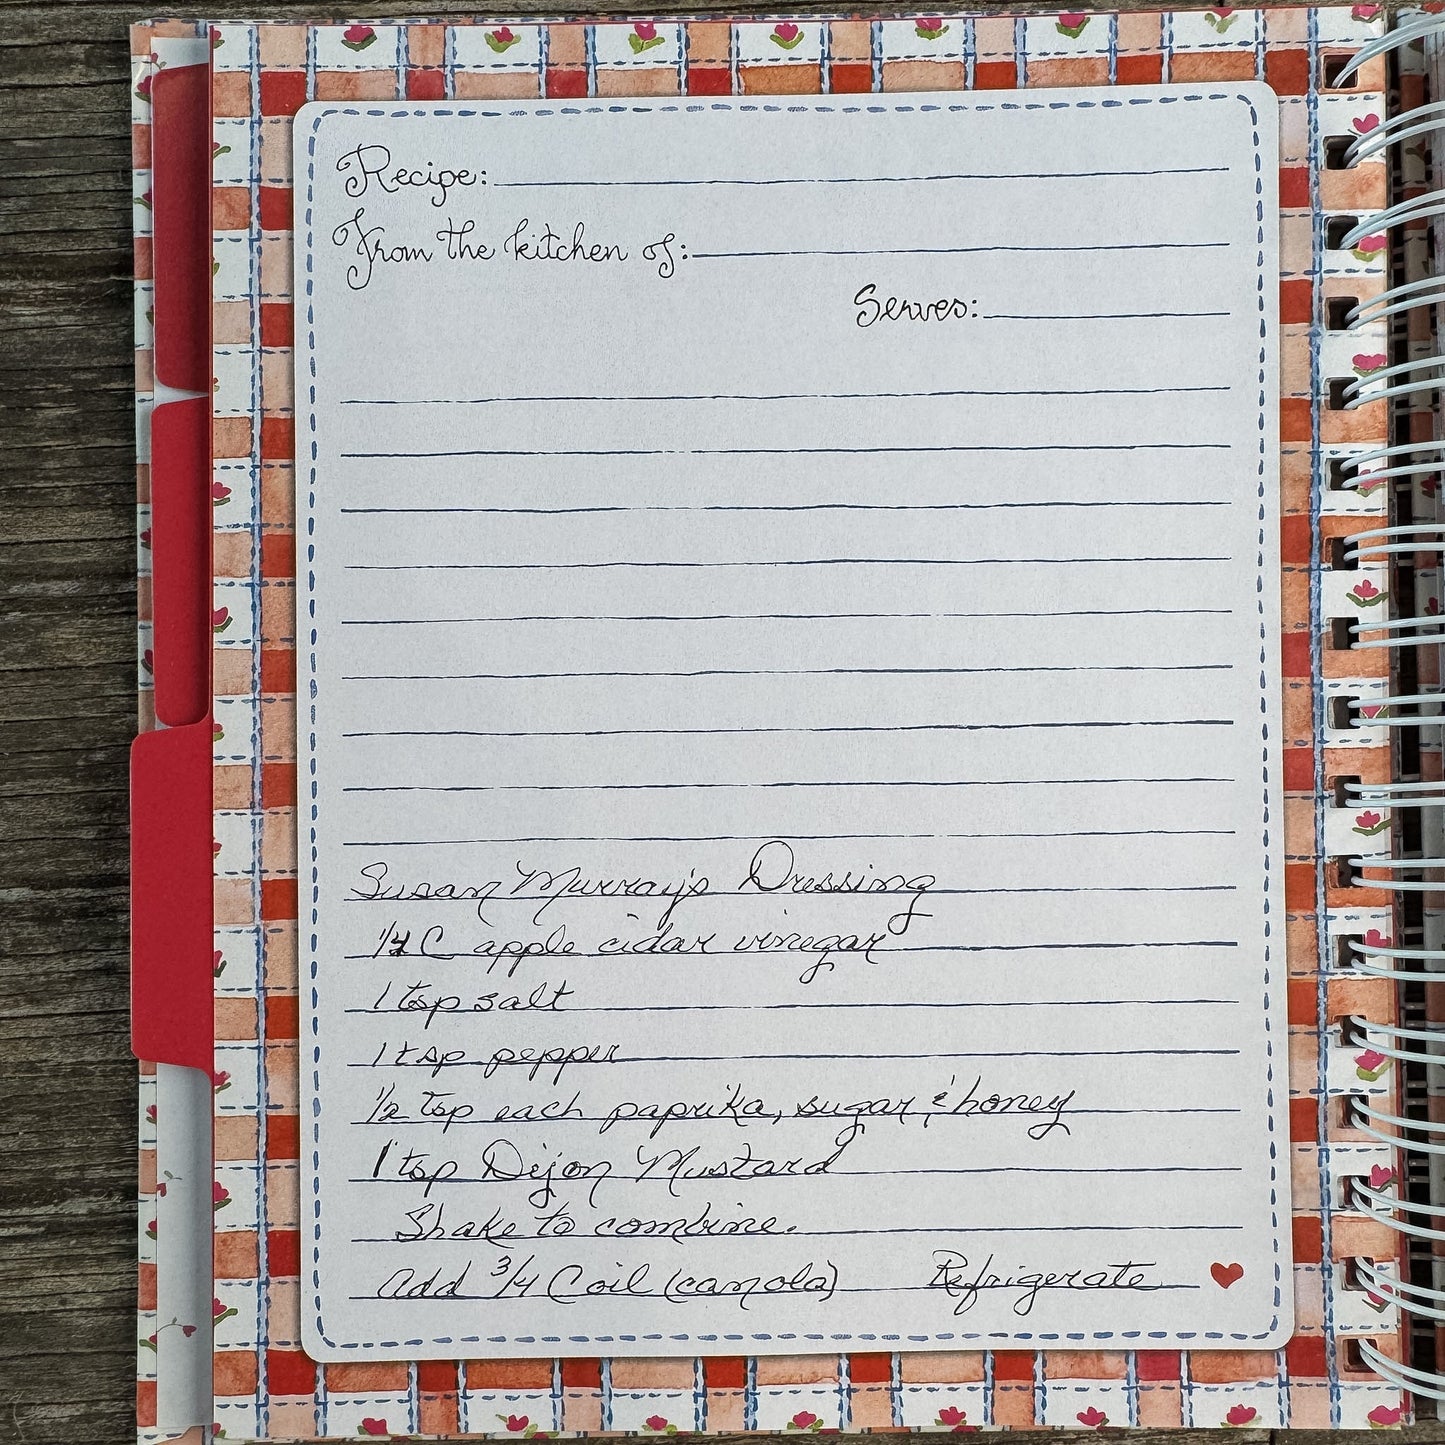 Recipe:
From the kitchen of:
Serves:
Susan Murray's Dressing
1/4 C apple cidar vinegar
1 tsp salt
1 tsp pepper
1/2 tsp each paprika, sugar, & honey
1 tsp Dijon Mustard
Shake to combine.
Add 3/4 C oil (canola) Refrigerate